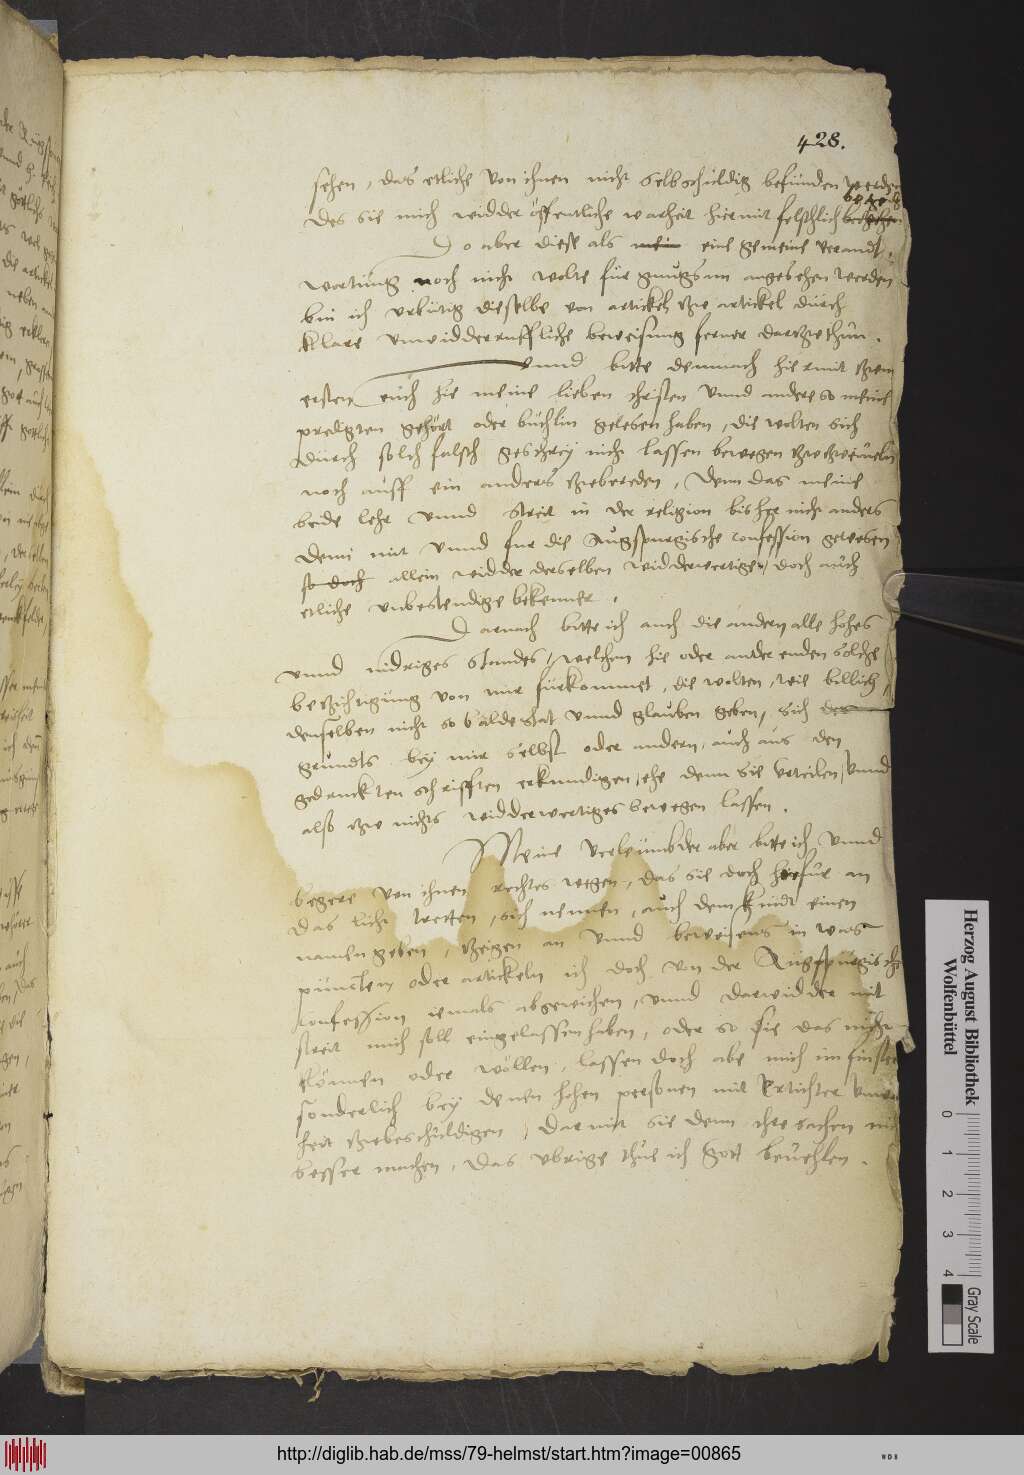 428.
sehen, das etliche von ihnen nicht selbschuldig befunden werden
des sie mich widder öffentliche warheit hiermit felschlich
So aber diese als mein eine gemeine verandt-
wortung noch nicht wolte für gnugsam angesehen werden
bin ich urbütig dieselbe von artickel zw artickel durch
klare unwidderruffliche beweisung ferner darzwthun.
unnd bitte demnach hiermit zwm
ersten euch hie meine lieben christen unnd andere so meine
predigten gehört oder büchlin gelesen haben, die wolten sich
durch solch falsch geschrey nicht lassen bewegen zw zweiueln
noch auff ein anders zwbereden, Denn das meine
beide lehr unnd streit in der religion bisher nicht anders
denn mit unnd fur die Augspurgische confession gewesen
so doch allein widder derselben widderwertige, doch auch
etliche unbestendige bekenner.
Darnach bitte ich auch die andern alle hohes
unnd nidriges standes, welchen hie oder ander enden solche
bezichtigung von mir fürkommet, die wolten, wie billich,
denselben nicht so balde stat unnd glauben geben, sich der
grundts bey mir selbst oder andern, auch aus den
gedruckten schrifften erkundigen, ehe denn sie urteilen, unnd
also zw nichts widderwertiges bewegen lassen.
Meine verleumbder aber bitte ich unnd
begere von ihnen rechtes wegen, das sie doch herfür an
das licht tretten, sich nennen, auch dem kindt einen
namen geben, zeigen an unnd beweisens in was
puncten oder artickeln ich doch von der Augspurgischen
confession iemals abgewichen, unnd darwidder mit
streit mich soll eingelassen haben, oder so sie das nicht
können oder wöllen, lassen doch abe mich im finstern
sonderlich bey denen hohen personen mit ertichter
heit zwbeschuldigen, darmit sie denn ihre sachen nicht
besser machen, Das ubrige thue ich Gott beuehlen.
Herzog August Bibliothek
Wolfenbüttel
0 1 2 3 4
Gray Scale
http://diglib.hab.de/mss/79-helmst/start.htm?image=00865
WDB